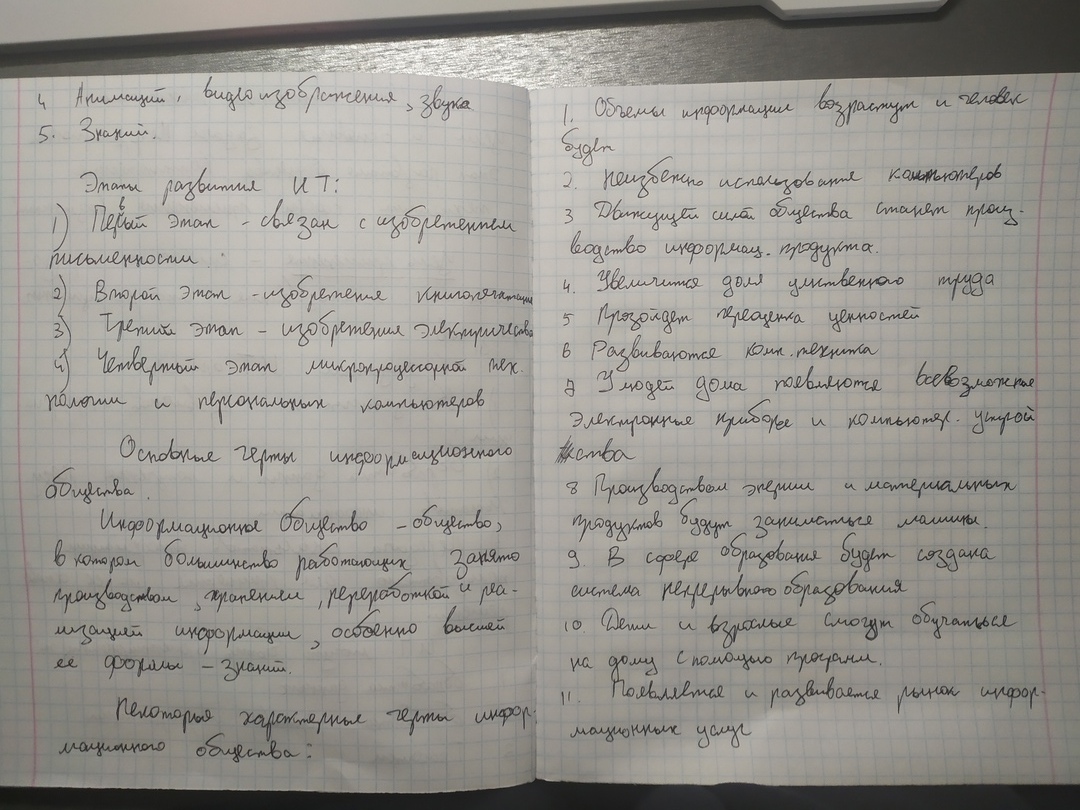 4 Анимаций, видеоизображения, звука
5. Знаний.
Этапы развития ИТ:
1) Первый этап - связан с изобретением
письменности.
2) Второй этап - изобретения книгопечатания
3) Третий этап - изобретения электричества
4) Четвертый этап микропроцессорной тех.
нологии и персональных компьютеров
Основные черты информационного
общества.
Информационное Общество - общество,
в котором большинство работающих занято
производством, хранением, переработкой и реа-
лизацией информации, особенно высшей
ее формы - знаний.
Некоторые характерные черты инфор-
мационного общества:
1. Объемы информации возрастут и человек
будет
2. Неизбежно использование компьютеров
3 Движущей силой общества станет произ-
водство информац. продукта.
4. Увеличится доля умственного труда
5 Прозойдет переоценка ценностей
6 Развиваются комп. техника
7 У людей дома появляются всевозможные
электронные приборы и компьютер. устрой
ства
8 Производством энергии и материальных
продуктов будут заниматься машины.
9. В сфере образования будет создана
система непрерывного образования
10 Дети и взрослые смогут обучаться
на дому с помощью программ.
11. Появляется и развивается рынок инфор-
мационных услуг